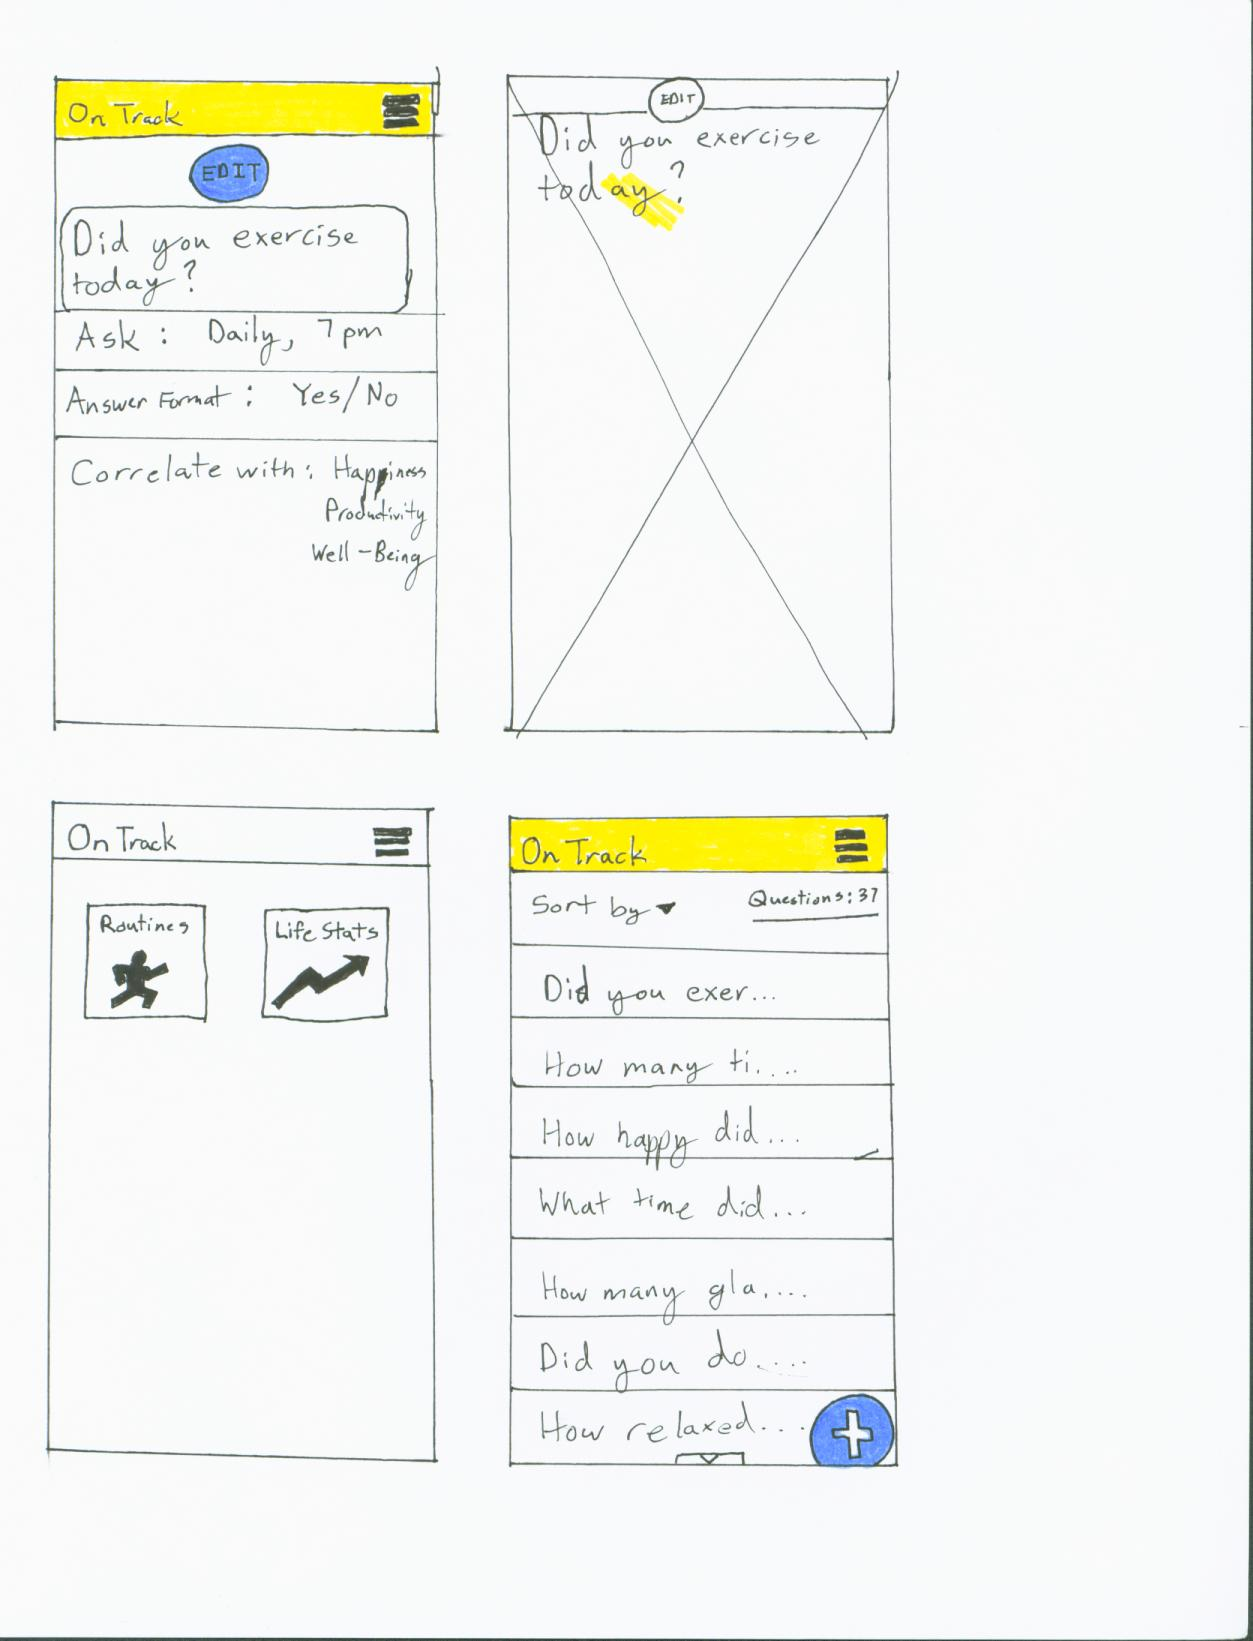 On Track
EDIT
Did you exercise
today?
Ask : Daily, 7 pm
Answer Format : Yes/No
Correlate with : Happiness
Productivity
Well-Being
EDIT
Did you exercise
today?
On Track
Routines
Life Stats
On Track
Sort by
Questions: 37
Did you exer...
How many ti....
How happy did...
What time did...
How many gla....
Did you do....
How relaxed...